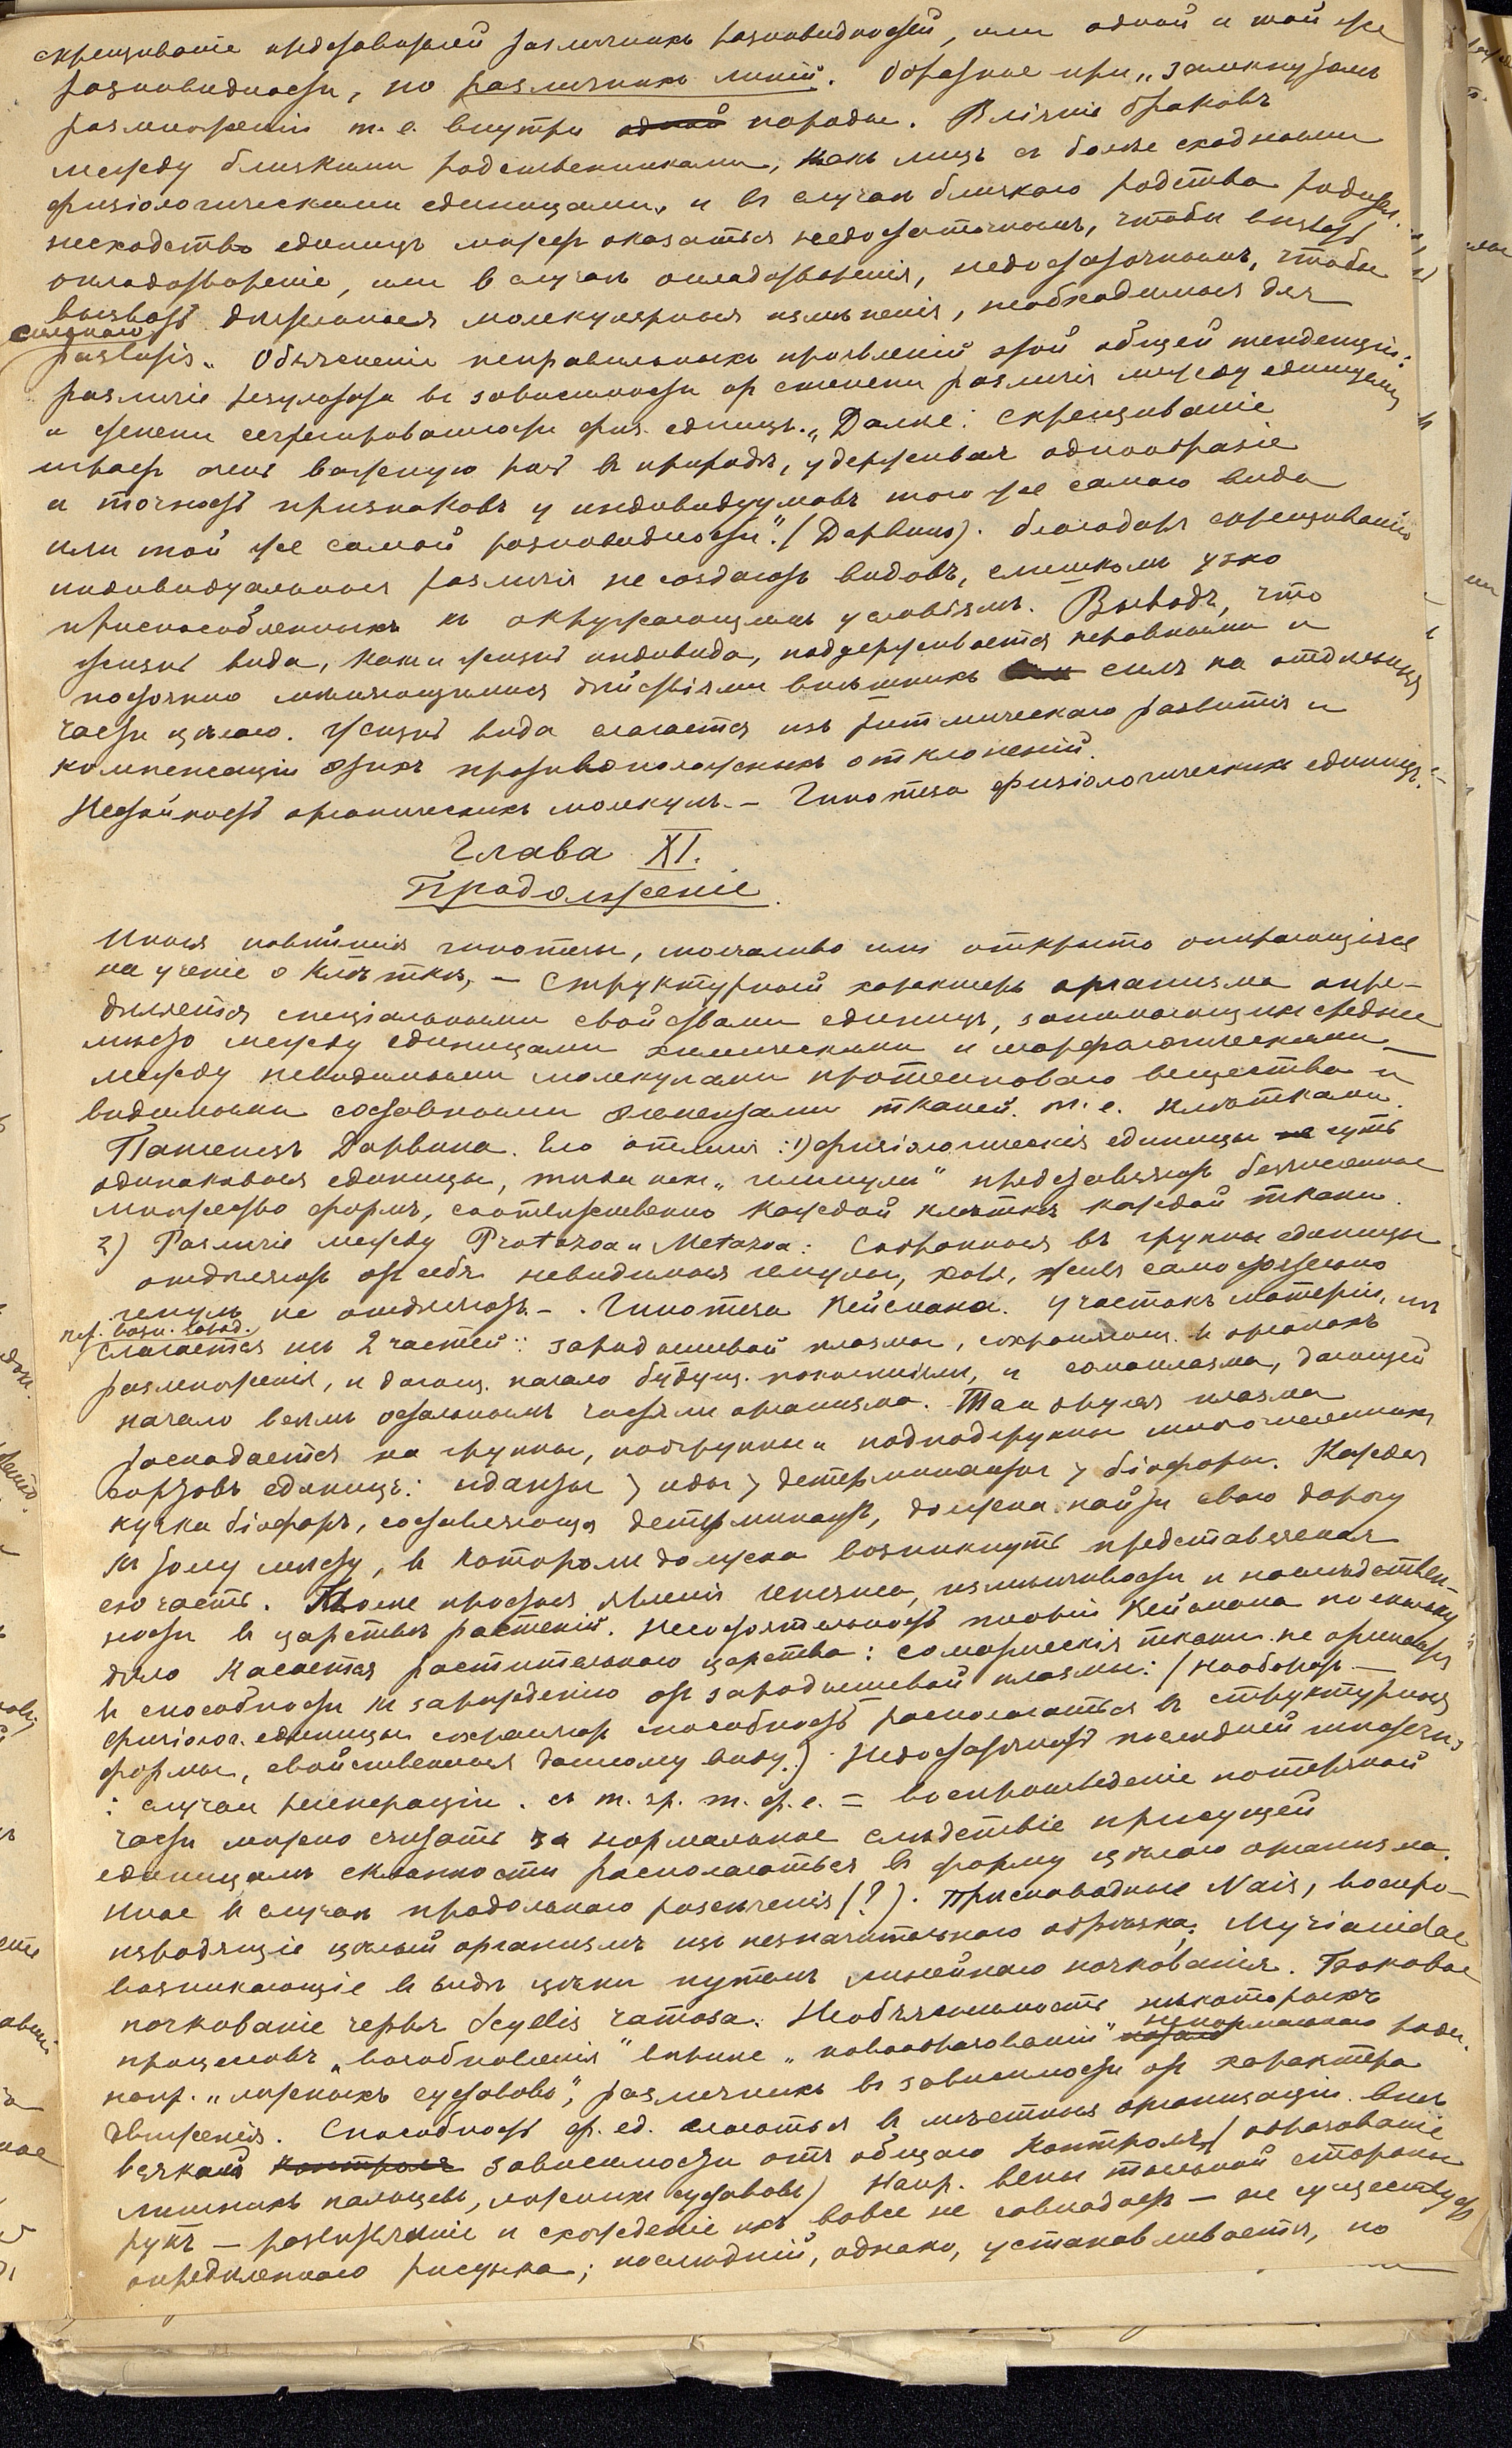 скрещиваніе представителей различныхъ разновидностей, или одной и той же
разновидности, но различныхъ линій. Обратное при „замкнутомъ
размноженіи т. е. внутри одной породы. Вліяніе браковъ
между близкими родственниками, какъ лицъ съ более сходными
физіологическими единицами, и въ случаѣ близкаго родства
несходство единицъ можетъ оказаться недостаточнымъ, чтобы вызвать
оплодотвореніе, или въ случаѣ оплодотворенія, недостаточнымъ, чтобы
вызвать дѣятельныя молекулярныя измѣненія, необходимыя для
сильнаго
развитія„ Объясненіе неправильныхъ проявленій этой общей тенденціи:
различіе результата въ зависимости от степени различія между единицами
и степени сегрегированности физ. единицъ.„ Далѣе: скрещиваніе
играетъ очень важную роль въ природѣ, удерживая однообразіе
и точность признаковъ у индивидуумовъ того же самаго вида
или той же самой разновидности". (Дарвинъ). Благодаря скрещиванію
индивидуальныя различія не создаютъ видовъ, слишкомъ узко
приспособленныхъ къ окружающимъ условіямъ. Выводъ, что
жизнь вида, какъ и жизнь индивида, поддерживается неравными и
постоянно мѣняющимися дѣйствіями внѣшнихъ силъ на отдѣльныя
части цѣлаго. Жизнь вида слагается изъ ритмическаго развитія и
компенсаціи этихъ противоположныхъ отклоненій.
Нестойкость органическихъ молекулъ. – Гипотеза физіологическихъ единицъ. –
Глава XI.
Продолженіе.
Иныя новѣйшія гипотезы, молчаливо или открыто опирающіяся
на ученіе о клѣткѣ, – Структурный характеръ организма опре-
дѣляется спеціальными свойствами единицъ, занимающихъ среднее
мѣсто между единицами химическими и морфологическими –
между невидимыми молекулами протеиноваго вещества и
видимыми составными элементами тканей, т. е. клѣтками.
Пангенезъ Дарвина. Его отличія: 1) физіологическія единицы не суть
одинаковыя единицы, тогда какъ „геммули" представляютъ безчисленное
множество формъ, соотвѣтственно каждой клѣткѣ каждой ткани.
2) Различіе между Protozoa и Metazoa: Собранныя въ группы единицы
отдѣляютъ отъ себя невидимыя гемулы, хотя, живя самостоятельно
гемулъ не отдѣляютъ. – . Гипотеза Вейсмана. Участокъ матеріи, из
слагается изъ 2 частей: зародышевой плазмы, сохраняющ. въ органахъ
размноженія, и дающ. начало будущ. поколѣніямъ, и сомаплазма, дающей
начало всѣмъ остальнымъ частямъ организма. Та и другая плазма
распадается на группы, подгруппы и подподгруппы многочисленныхъ
сортовъ единицъ: иданты > иды > детерминанты > біофоры. Каждая
кучка біофоръ, составляющая детерминантъ, должна найти свою дорогу
къ тому мѣсту, въ которомъ должна возникнуть представляемая
ею часть. Болѣе простыя явленія генезиса, измѣнчивости и наслѣдствен-
ности въ царствѣ растеній. Несостоятельность теоріи Вейсмана поскольку
дѣло касается растительнаго царства: соматическія ткани не
въ способности къ зарожденію отъ зародышевой плазмы: (наоборот –
физіолог. единицы сохраняютъ способность располагаться въ структурныя
формы, свойственныя данному виду.). Недостаточность последней
: случаи регенераціи. съ т. зр. т. ф. е. = воспроизведеніе потерянной
части можно считать за нормальное слѣдствіе присущей
единицамъ склонности располагаться въ форму цѣлаго организма.
Иное въ случаѣ продольнаго разсѣченія (?). Прѣсноводные Nais, воспро-
изводящіе цѣлый организмъ изъ незначительнаго обрѣзка; Myrianidae
возникающіе въ видѣ цѣпи путемъ линейнаго почкованія. Боковое
почкованіе червя Syllis ramosa. Необъяснимость нѣкоторыхъ
процессовъ „возобновленія" вполнѣ „новообразованій" ненормальнаго рода.
напр. „ложныхъ суставовъ", различныхъ въ зависимости от характера
движенія. Способность ф. ед. слагаться въ мѣстныя организаціи внѣ
всякой контроля зависимости отъ общаго контроля (образованіе
лишнихъ пальцевъ, ложныхъ суставовъ) Напр. вены тыльной стороны
рукъ – развѣтвленіе и схожденіе ихъ вовсе не совпадаетъ – не существуетъ
опредѣленнаго рисунка; послѣдній, однако, устанавливается, но